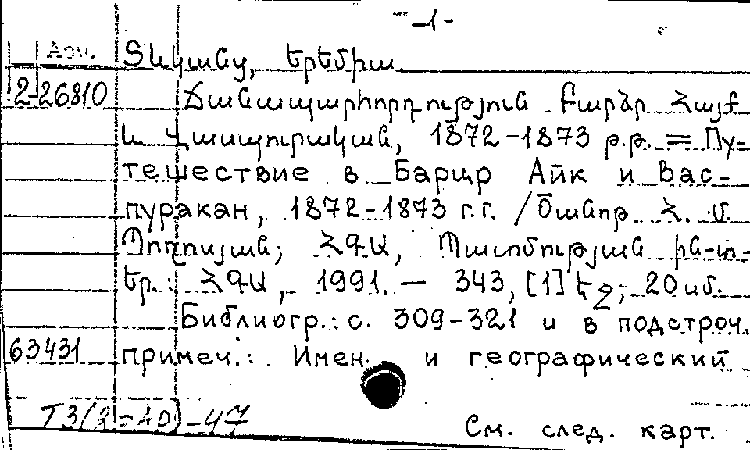 -1-
Տևկանց, Երեմիա
2-26810 Ճանապարհորդություն Բարձր Հայք
և Վասպուրական, 1872-1873 թ.թ. = Пу-
тешествие в Барцр Айк и Вас-
пуракан, 1872-1873 г.г. / Ծանոթ. Հ. Մ.
Պողոսյան; ՀԳԱ, Պատմության ին-տ
Եր.: ՀԳԱ, 1991. — 343, [1] էջ; 20 սմ.
Библиогр.: с. 309-321 и в подстроч.
63431 примеч.: Имен. и географический
См. след. карт.